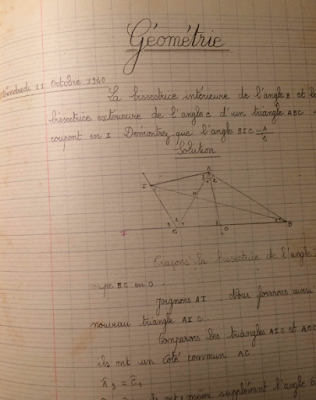 Géométrie
Vendredi 11 Octobre 1940
La bissectrice intérieure de l'angle B et la
bissectrice extérieure de l'angle C d'un triangle ABC se
coupent en I Demontrez que l'angle BIC = A/2
Solution
Traçons la bissectrice de l'angle
BC en D.
joignons AI Nous formons ainsi
nouveau triangle AIC
Comparons les triangles AIC et
ils ont un côté commun AC
Â3 = Ĉ4
supplément l'angle